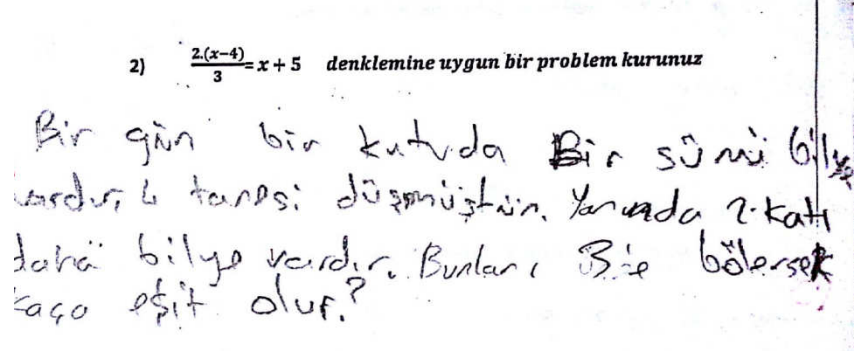 2) 2.(x-4)/3 = x + 5 denklemine uygun bir problem kurunuz
Bir gün bir kutuda Bir sürü bilye
vardır, 4 tanesi düşmüştür. Yanında 2 katı
daha bilye vardır. Bunları 3'e bölersek
kaça eşit olur?